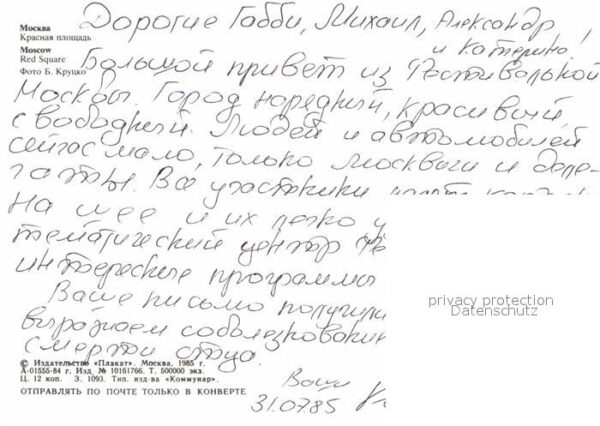 Москва
Красная площадь
Moscow
Red Square
Фото Б. Круцко
Дорогие Габби, Михаил, Александр,
и Катерина!
Большой привет из Фестивальной
Москвы. Город нарядный, красивый
свободный. Людей и автомобилей
сейчас мало, только москвичи и деле-
гаты. Все участники
на шее и их легко
тематический центр
интересные программы
Ваше письмо получили
выражаем соболезнования
смерти отца.
Ваши
31.07.85
privacy protection
Datenschutz
© Издательство «Плакат». Москва, 1985 г.
А-01555-84 г. Изд. № 10161766. Т. 500000 экз.
Ц. 12 коп. З. 1093. Тип. изд-ва «Коммунар».
ОТПРАВЛЯТЬ ПО ПОЧТЕ ТОЛЬКО В КОНВЕРТЕ